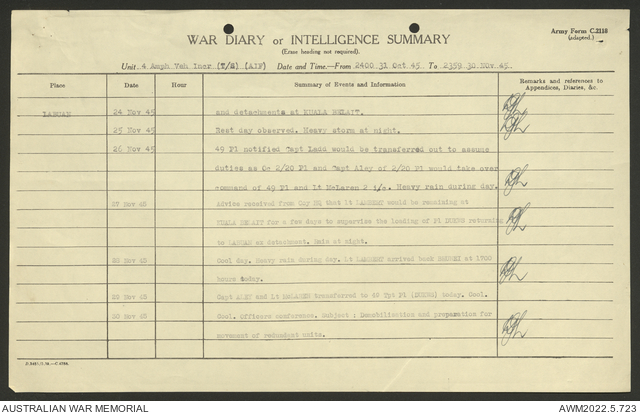 Army Form C.2118
(adapted.)
WAR DIARY or INTELLIGENCE SUMMARY
(Erase heading not required).
Unit. 4 Amph Veh Incr (T/S) (AIF) Date and Time.—From 2400 31 Oct 45 To 2359 30 Nov 45.
Place Date Hour Summary of Events and Information Remarks and references to Appendices, Diaries, &c.
LABUAN 24 Nov 45 and detachments at KUALA BELAIT.
25 Nov 45 Rest day observed. Heavy storm at night.
26 Nov 45 49 Pl notified Capt Ladd would be transferred out to assume
duties as Oc 2/20 Pl and Capt Aley of 2/20 Pl would take over
command of 49 Pl and Lt McLaren 2 i/c. Heavy rain during day.
27 Nov 45 Advice received from Coy HQ that Lt LAMBERT would be remaining at
KUALA BELAIT for a few days to supervise the loading of Pl DUKWS returning
to LABUAN ex detachment. Rain at night.
28 Nov 45 Cool day. Heavy rain during day. Lt LAMBERT arrived back at 1700
hours today.
29 Nov 45 Capt ALEY and Lt McLAREN transferred to 49 Tpt Pl (DUKWS) today. Cool.
30 Nov 45 Cool. Officers conference. Subject : Demobilisation and preparation for
movement of redundant units.
AUSTRALIAN WAR MEMORIAL AWM2022.5.723